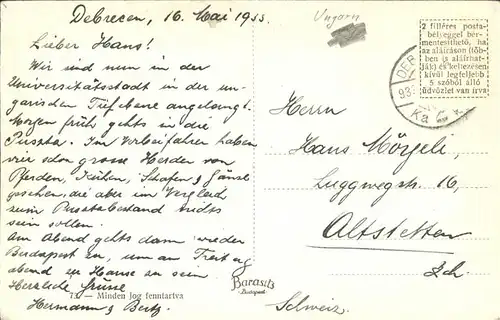 Debrecen, 16. Mai 1933.
Lieber Hans!
Wir sind nun in der
Universitätsstadt in der un-
garischen Tiefebene angelangt.
Morgen früh gehts in die
Puszta. Im Vorbeifahren haben
wir schon grosse Herden von
Pferden, Kühen, Schafen & Gänse
gesehen, die aber im Vergleich
zum Pusztabestand nichts
sein sollen.
Am Abend gehts dann wieder
Budapest zu, um am Freitag
abend zu Hause zu sein
Herzliche Grüsse
Hermann & Betz.
Minden jog fenntartva
Barasits
Budapest
Ungarn
2 filléres posta-
bélyeggel bér-
mentesíthető, ha
az aláíráson (töb-
ben is aláírhat-
ják) és keltezésen
kívül legfeljebb
5 szóból álló
üdvözlet van írva
DEB
933
Herrn
Hans Mörgeli,
Luggwegstr. 16,
Altstetten
Zch.
Schweiz.